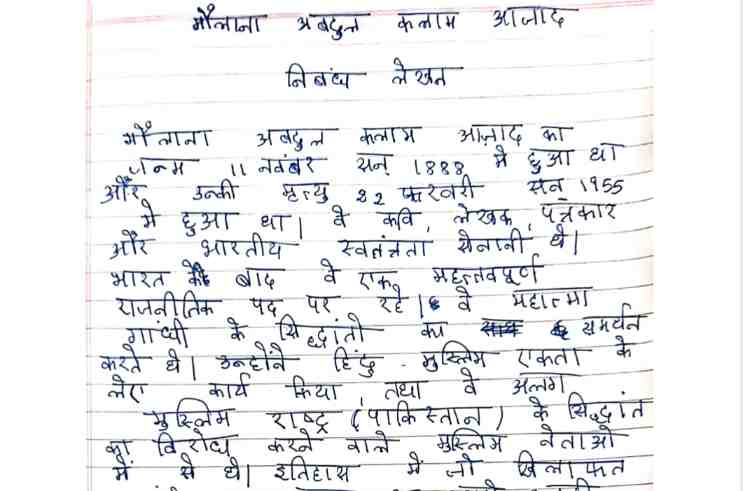 मौलाना अबदुल कलाम आजाद
निबंध लेखन
मौलाना अबदुल कलाम आज़ाद का
जन्म 11 नवंबर सन् 1888 मे हुआ था
और उनकी मृत्यु 22 फरवरी सन् 1955
मे हुआ था। वे कवि, लेखक, पत्रकार
और भारतीय स्वतंत्रता सेनानी थे।
भारत के बाद वे एक महत्तवपूर्ण
राजनीतिक पद पर रहे। वे महात्मा
गांधी के सिद्धांतो का समर्थन
करते थे। उन्होंने हिंदु - मुस्लिम एकता के
लेए कार्य किया, तथा वे अलग
मुस्लिम राष्ट्र (पाकिस्तान) के सिद्धांत
का विरोध करने वाले मुस्लिम नेताओ
में से थे। इतिहास में जो खिलाफत